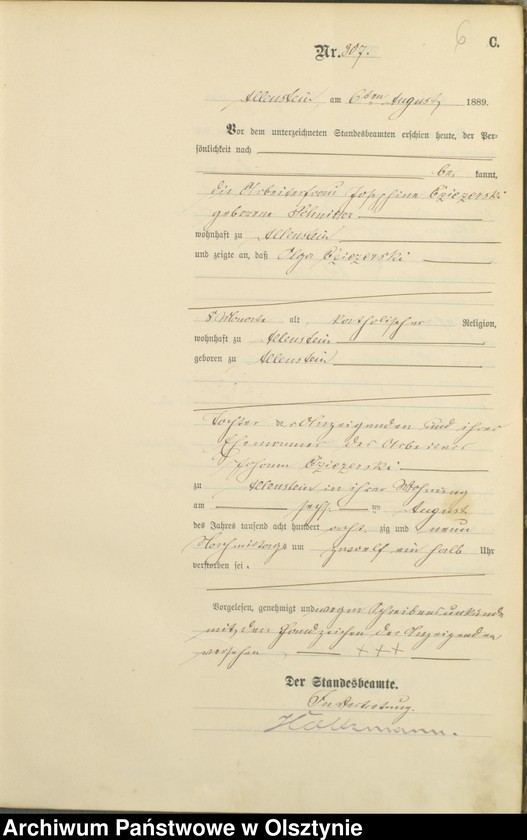 6 C.
Nr. 307.
Allenstein, am 6ten August 1889.
Vor dem unterzeichneten Standesbeamten erschien heute, der Per-
sönlichkeit nach
be kannt,
die Arbeiterfrau Josephine Cziezerski
geborene
wohnhaft zu Allenstein
und zeigte an, daß Olga Cziezerski
8 Monate alt, katholischer Religion,
wohnhaft zu Allenstein
geboren zu Allenstein
Tochter der Anzeigenden und ihres
Ehemannes des Arbeiters
Johann Cziezerski
zu Allenstein in ihrer Wohnung
am sechs ten August
des Jahres tausend acht hundert acht zig und neun
Nachmittags um zwoelf ein halb Uhr
verstorben sei.
Vorgelesen, genehmigt und wegen Schreibensunkunde
mit den Handzeichen der Anzeigenden
versehen + + +
Der Standesbeamte.
In Vertretung.
Holtzmann.
Archiwum Państwowe w Olsztynie